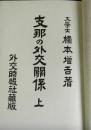 文学士 橋本増吉著
支那の外交關係 上
外交時報社藏版